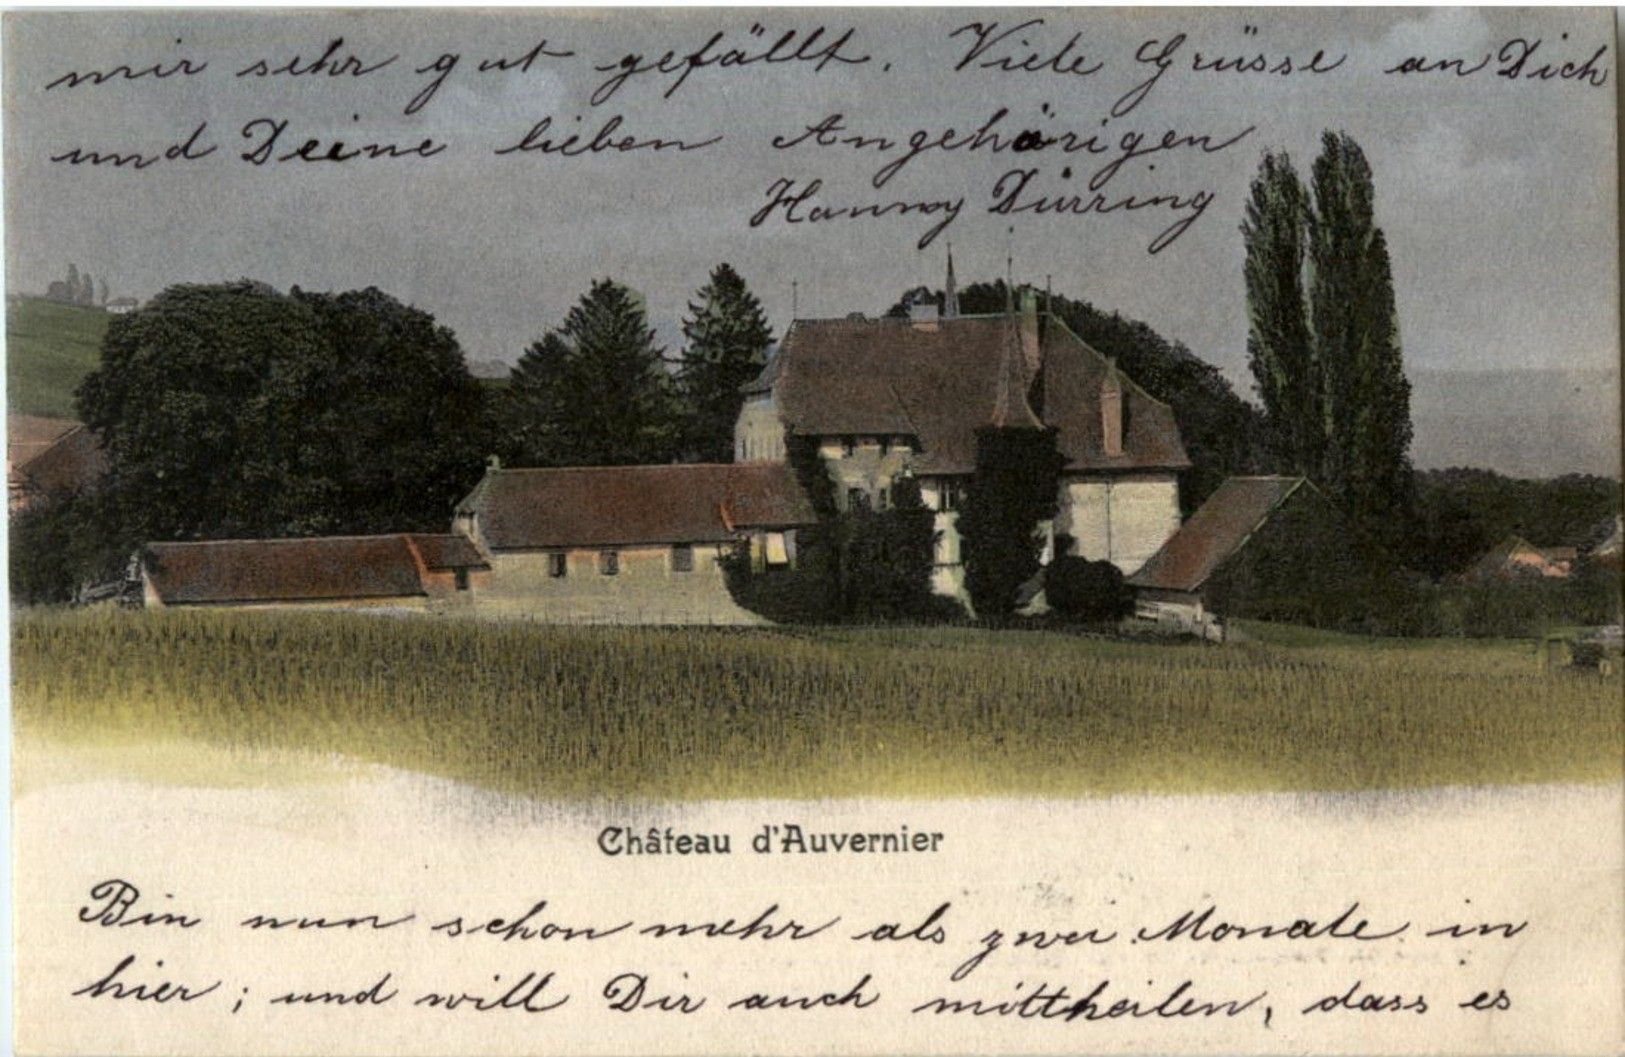 mir sehr gut gefällt. Viele Grüsse an Dich
und Deine lieben Angehörigen
Hanny Dürring
Château d'Auvernier
Bin nun schon mehr als zwei Monate in
hier; und will Dir auch mittheilen, dass es